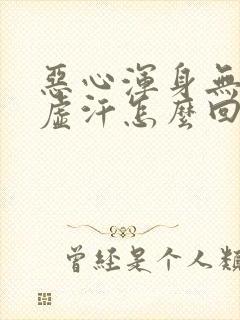 惡心渾身無
虛汗怎麼回
曾經是个人類